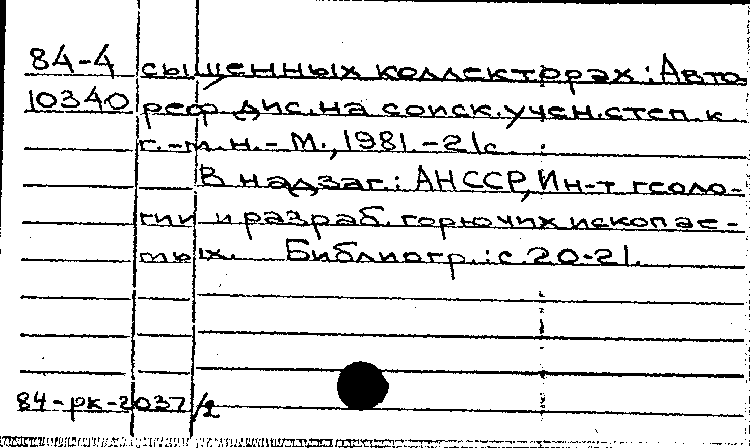 84-4 сыщенных коллекторах: Авто-
10340 реф. дис. на соиск. учен. степ. к.
г.-м.н. - М., 1981. - 21с.
В надзаг.: АН СССР, Ин-т геоло-
гии и разраб. горючих ископае-
мых. Библиогр.: с. 20-21.
84-рк-2037/2